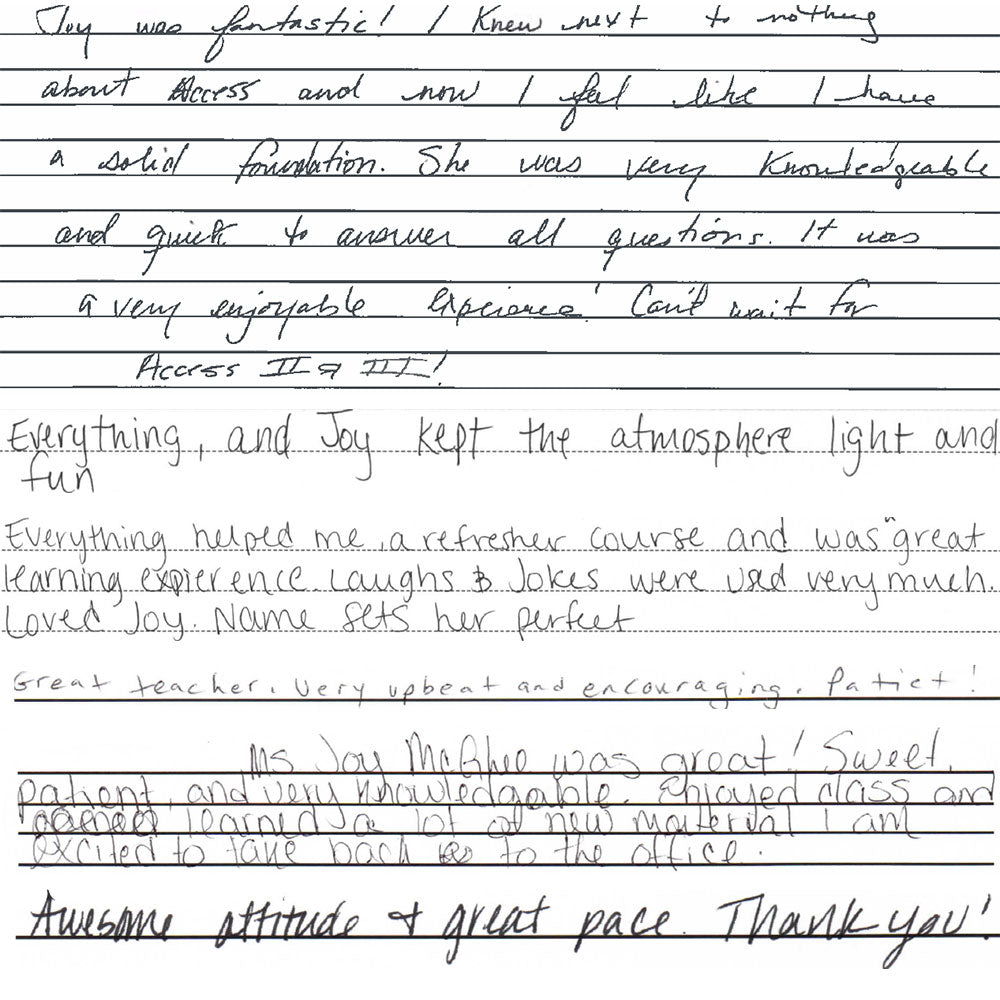 Joy was fantastic! I Knew next to nothing
about Access and now I feel like I have
a solid foundation. She was very Knowledgeable
and quick to answer all questions. It was
a very enjoyable experience! Can't wait for
Access II & III!
Everything, and Joy kept the atmosphere light and
fun
Everything helped me, a refresher course and was "great
learning expierence. Laughs & Jokes were used very much.
Loved Joy. Name sets her perfect
Great teacher. Very upbeat and encouraging. Patiet!
Ms Joy McGhee was great! Sweet,
patient, and very knowledgable. Enjoyed class and
learned a lot of new material I am
excited to take back to the office.
Awesome attitude & great pace. Thank you!